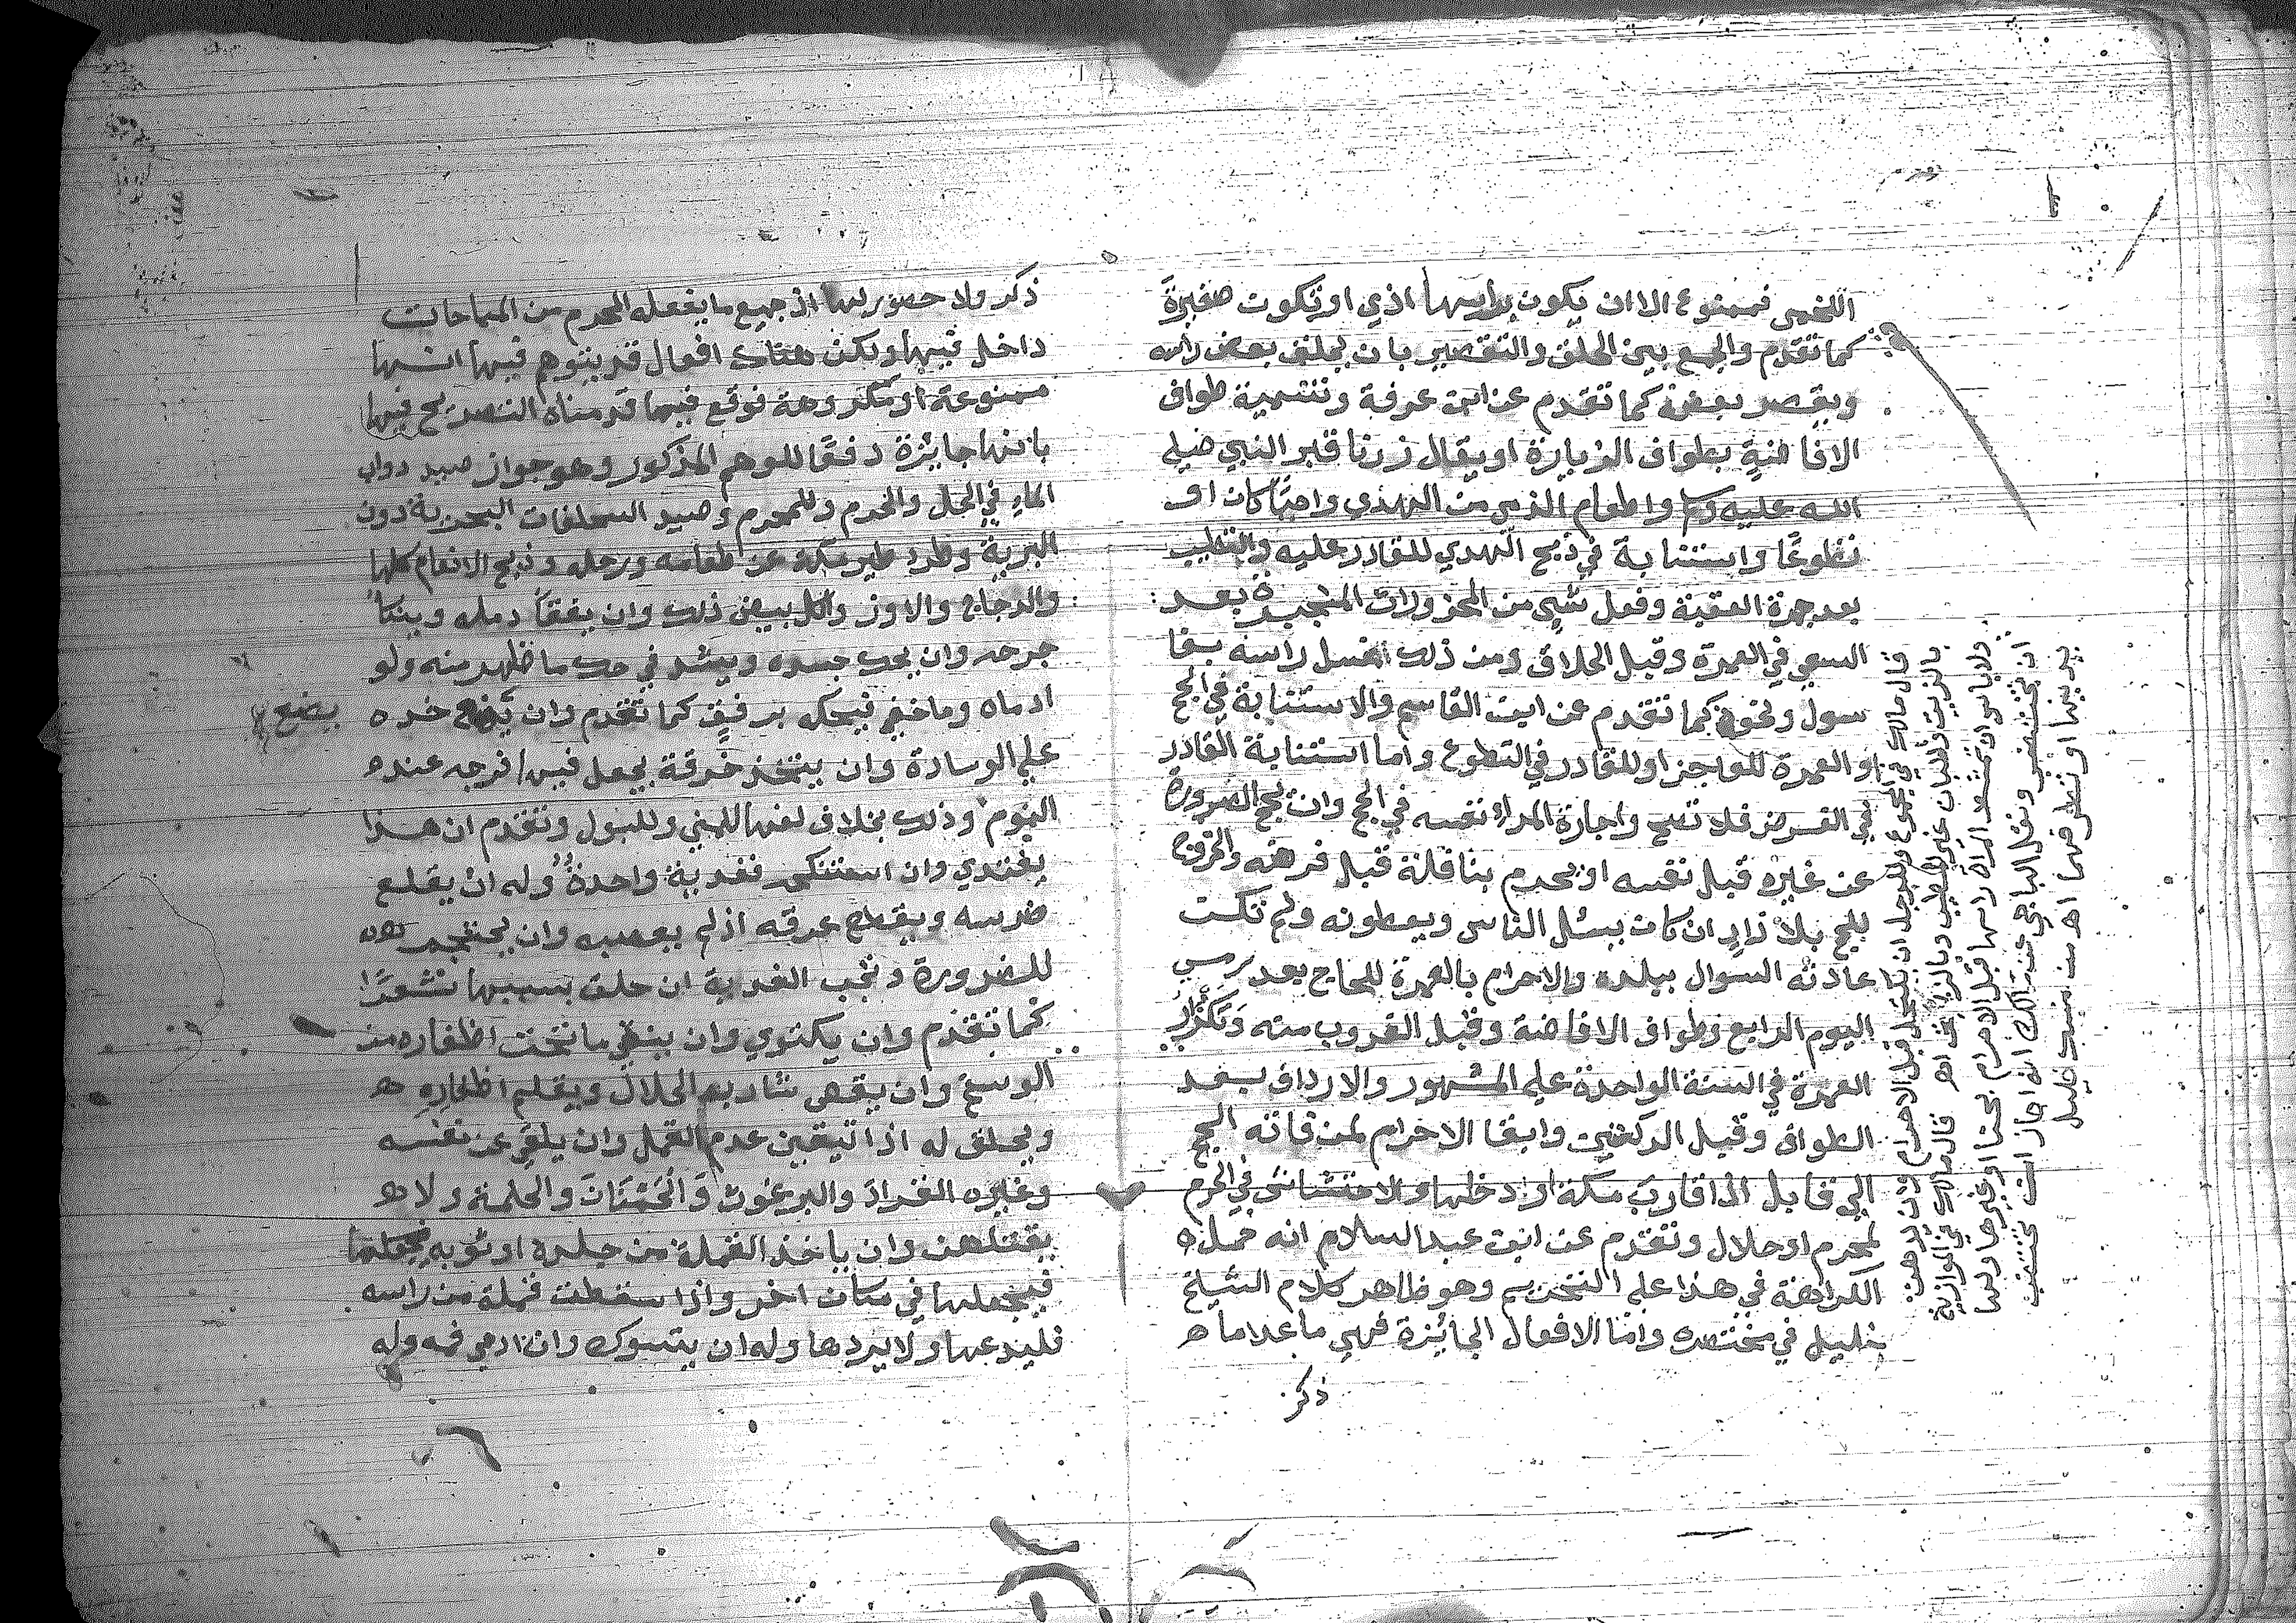 اللخمي فممنوع الا ان يكون براسها اذي او تكون صغيرة
كما تقدم والجمع بين الحلق والتقصير بان يحلق بعض راسه
ويقصر بعضه كما تقدم عن ابن عرفة وتسمية طواف
الافاضة بطواف الزيارة او يقال زرنا قبر النبي صلي
الله عليه وسلم واطعام الذمي من الهدي واجبًا كان او
تطوعًا واستنابة في ذبح الهدي للقادر عليه والتطيب
بعد جمرة العقبة وفعل شيء من المحذورات المنجبرة بعد
السعي في العمرة وقبل الحلاق ومن ذلك اغسل راسه بغا
سول ونحوه كما تقدم عن ابن القاسم والاستنابة في الحج
او العمرة للعاجز او للقادر في التطوع واما استنابة القادر
في الفرض فلا تصح واجارة المرء نفسه في الحج وان يحج الصرورة
عن غيره قبل نفسه او يحرم بنافلة قبل فرضه والخروج
للحج بلا زاد ان كان يسئل الناس ويعطونه ولم تكن
عادته السوال ببلده والاحرام بالعمرة للحاج بعد رمي
اليوم الرابع وطواف الافاضة وقبل الغروب منه وتكرار
العمرة في السنة الواحدة علي المشهور والارداف بعد
الطواف وقبل الركعتين وابقا الاحرام لمن فاته الحج
الي قابل اذا قارب مكة او دخلها والاحتشاش في الحرم
لمحرم او حلال وتقدم عن ابن عبد السلام انه حمل
الكراهة في هذا علي التحريم وهو ظاهر كلام الشيخ
خليل في مختصره واما الافعال الجائزة فهي ما عدا ما
ذكر
قال مالك في المجموع وللرجل ان يكتحل قبل الاحرام وان يدهن
بالزيت وبالبان غير المطيب وبالزنبق اه قال مالك في الموازية
ولا باس ان تمتشط المراة راسها قبل الاحرام بحنا او غيرها ولها
ان تختضب ونقل الباجي عن مالك انه اجاز ان تختضب
يديها او تطرفهما اه من منسك خليل
ذكر ولا حصر لها اذ جميع ما يفعله المحرم من المباحات
داخل فيها ولكن هناك افعال قد يتوهم فيها انها
ممنوعة او مكروهة فوقع فيما قدمناه التصريح فيها
بانها جايزة دفعًا للوهم المذكور وهو جواز صيد دواب
الماء في الحل والحرم وللمحرم وصيد السحلفات البحرية دون
البرية وطرد طير مكة عن طعامه ورحله وذبح الانعام كلها
والدجاج والاوز واكل بيض ذلك وان يفقأ دمله وينكا
جرحه وان يحك جسده ويشد في حك ما ظهر منه ولو
ادماه وما خفي فيحكه برفق كما تقدم وان يضع خده
يضع
علي الوسادة وان يتخذ خرقة يجعل فيها فرجه عند
النوم وذلك بخلاف لفها للمني وللبول وتقدم ان هذا
يفتدي وان استنكح ففدية واحدة وله ان يقلع
ضرسه ويقطع عرقه اذ لم يعصبه وان يحتجم
للضرورة وتجب الفدية ان حلق بسببها شعرًا
كما تقدم وان يكتوي وان ينقي ما تحت اظفاره من
الوسخ وان يقص شارب الحلال ويقلم اظفاره
ويحلق له اذا تيقن عدم القمل وان يلقي عن نفسه
وغيره القراد والبرغوث والحمنان والحلمة ولا
يقتلهن وان ياخذ القملة من جلده او ثوبه
فيجعلها في مكان اخر واذا سقطت قملة من راسه
فليدعها ولا يردها وله ان يتسوك وان ادمي فمه وله